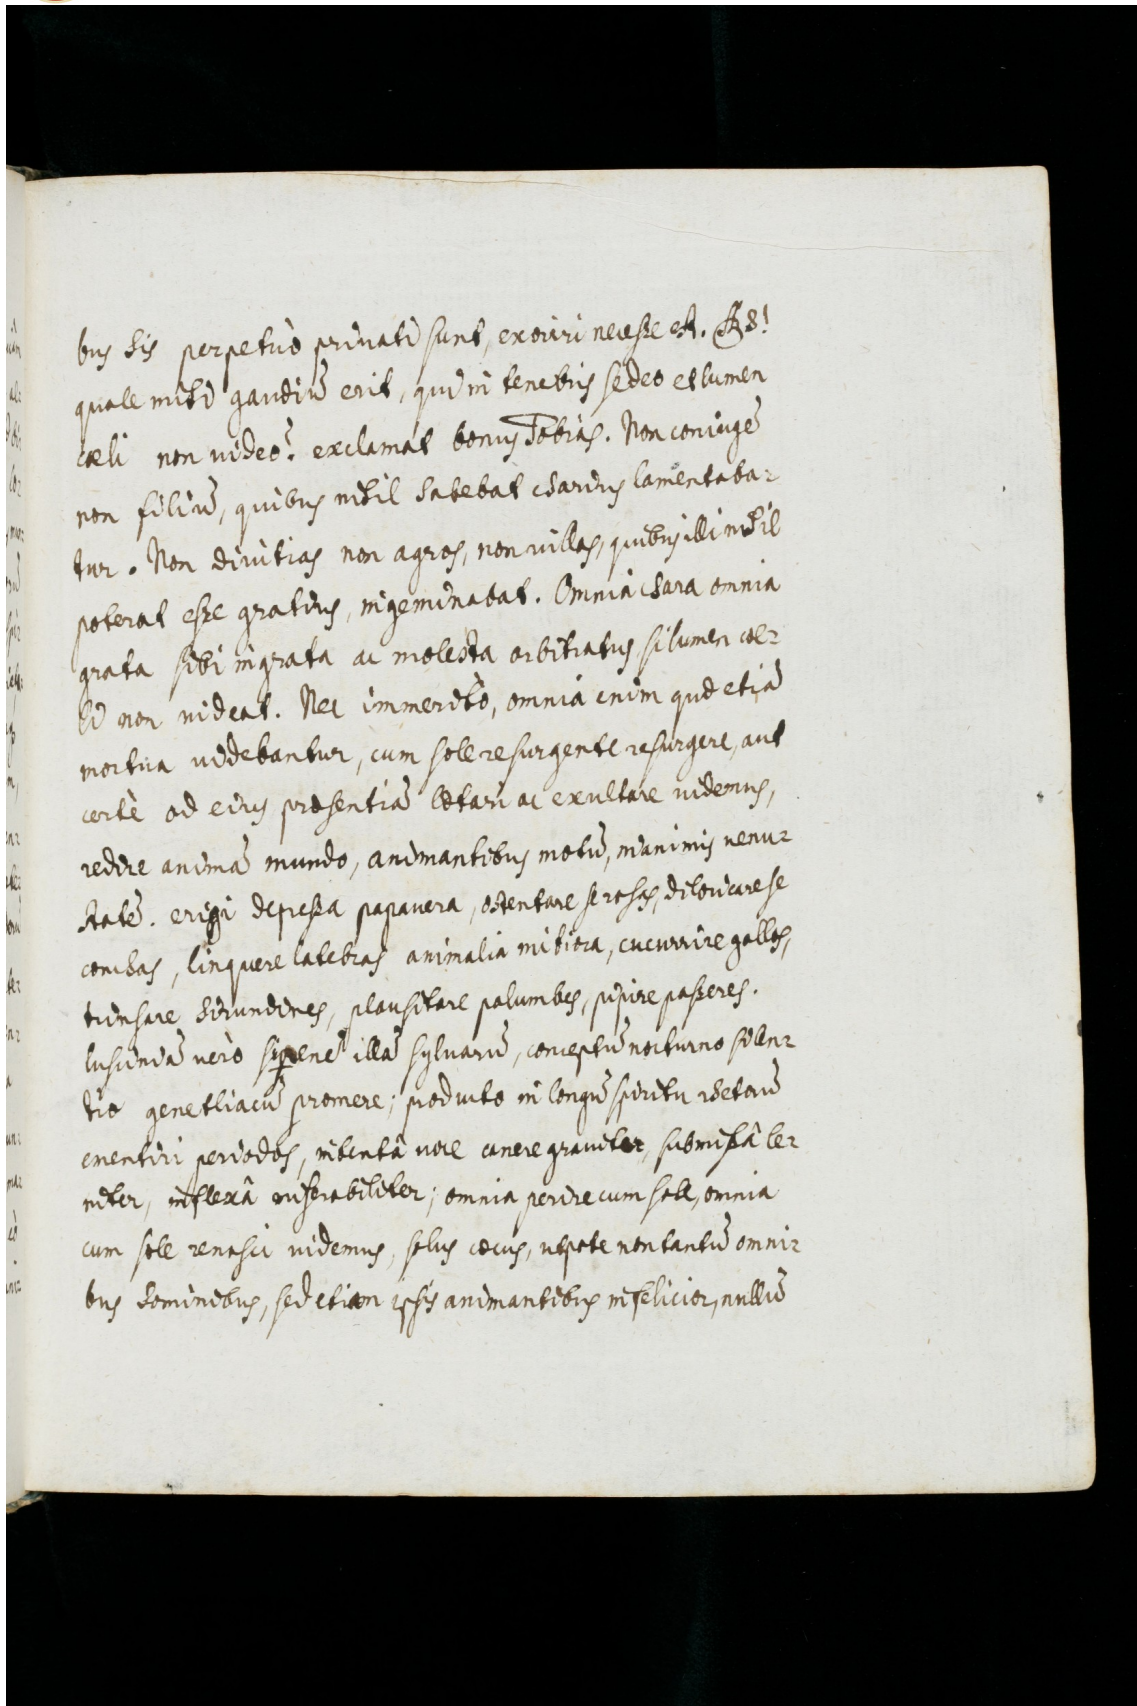 bus his perpetuò priuati sunt, exoriri necesse est. Ah!
quale mihi gaudiũ erit, qui in tenebris sedeo et lumen
cæli non video? exclamat bonus Tobias. Non coniugẽ
non filiũ, quibus nihil habebat charius lamentaba-
tur. Non diuitias non agros, non villas, quibus illi nihil
poterat esse gratius, ingeminabat. Omnia chara omnia
grata sibi ingrata ac molesta arbitratus, si lumen cæ-
li non videat. Nec immeritò, omnia enim quæ etiã
mortua videbantur, cum sole resurgente resurgere, aut
certè ad eius præsentiã lætari ac exultare videmus,
redire animã mundo, animantibus motũ, inanimis venu-
statẽ. erigi depressa papauera, ostentare se rosas, diloricare se
conchas, linquere latebras animalia mitiora, cucurrire gallos,
trinsare hirundines, plausitare palumbes, pipire passeres.
lusciniã verò sirenẽ illã syluarũ, conceptũ nocturno silen-
tio genethliacũ promere; producto in longũ spiritu rhetorũ
ementiri periodos, intentâ voce canere grauiter, submissâ le-
niter, inflexâ miserabiliter; omnia perire cum sole, omnia
cum sole renasci videmus, solus cæcus, utpote non tantũ omni-
bus hominibus, sed etiam ipsis animantibus infelicior, nullũ